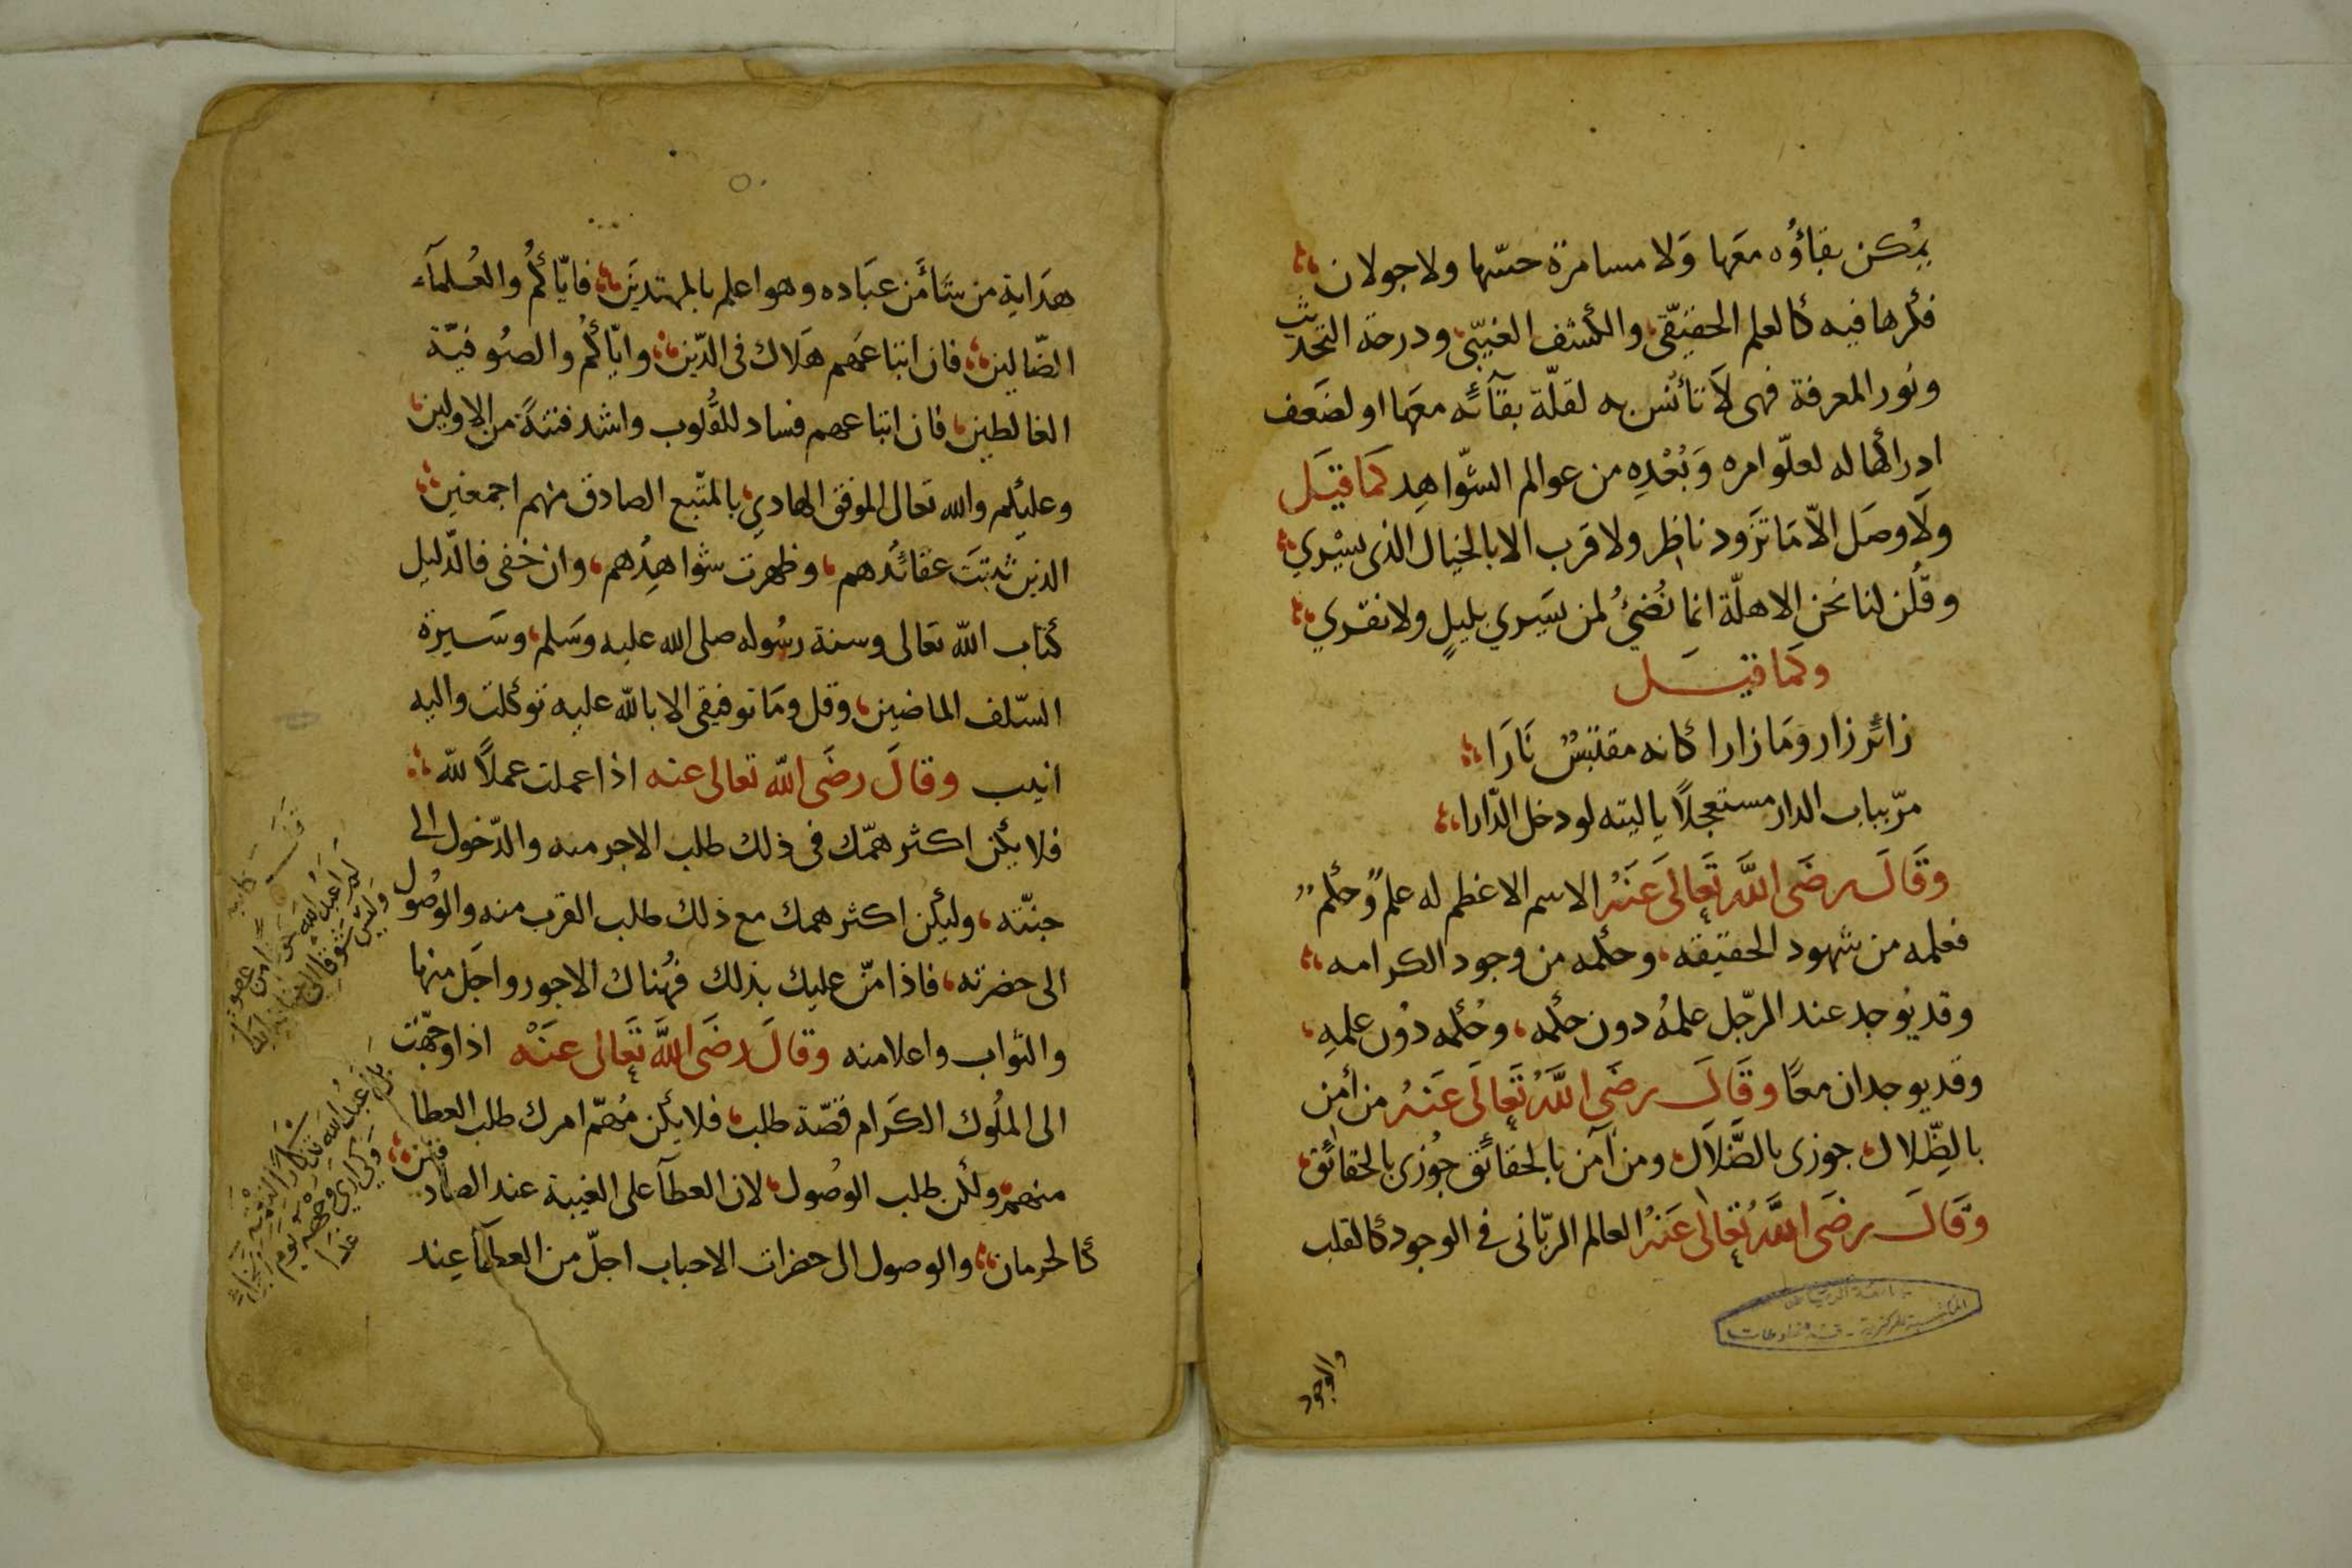 يمُكن بقاؤُه معَها وَلا مسامرة حسّها ولا جولان
فكرها فيه كالعلم الحقيقّى والكشف الغيبّى ودرجة التحدّيث
ونُور المعرفة فهى لاَ تأنُس به لقلّة بقآئه معهَا او لضَعف
ادراكها له لعلّو امره وَبُعْدِه من عوالم الشّواهِد كمَا قيَل
ولَا وصَل الاّ مَا تَزَود ناظر ولا قرب الا بالخيال الذى يسْري
وقُلن لنا نحن الاهلّة انما نُضئُ لمن يسَري بليلٍ ولا نقري
وكما قيل
زائر زار وَمَا زارا كانه مقتبسٌ نَارَا
مرّ بباب الدار مستعجلًا يا ليته لو دخل الدّارا
وَقَالَ رضَى اللَّه تَعالىَ عَنَهُ الاسم الاعظم له علمٌ وحكمٌ
فعلمه من شهود الحقيقه وحكمه من وجود الكرامه
وقد يُوجد عند الرجّل علمهُ دون حكمه وحُكمه دوُن علمهِ
وقد يوجدان معًا وقَالَ رضَى اللَّهُ تَعالىَ عَنهُ من أمن
بالظِّلال جوزى بالضَّلاَل ومن آمن بالحقائق جُوزى بالحقائق
وقَالَ رضَى اللَّهُ تعَالىَ عَنهُ العالم الربّانى فى الوجود كالقلب
والوجود
المكتبة المركزية - قسم المخطوطات
هدَاية من شَا مَن عبَاده وهو اعلم بالمهتديَن فايّاكُم والعُلمآء
الضّالين فان اتباعهَم هَلاك فى الدّين وايّاكُم والصُوفيّة
الغالطين فان اتباعهم فساد للقُلوب واشد فتنةً من الاولين
وعليكم والله تعالى الموفق الهادي بالمتّبع الصادق منهم اجمعين
الذين ثبتتَ عقائدُهم وظهرت شواهِدُهم وان خفى فالدّليل
كتاب اللّه تعالى وسنة رسُوله صلى الله عليه وسَلم وسَيرة
السّلف الماضين وقل ومَا توفيقى الا باللّه عليه توكلت واليه
انيب وقالَ رضَى اللّه تعالى عنه اذا عملت عملاً للّه
فلا يكن اكثر همّك فى ذلك طلب الاجر منه والدّخول الى
جنّته وليكن اكثر همك مع ذلك طلب القرب منه والوُصول
الى حضرته فاذا منّ عليك بذلك فهُناك الاجور واجَل منها
والثواب واعلا منه وقالَ رضَى اللَّه تَعالى عنَهْ اذا وجّهت
الى الملُوك الكَرام قصّة طلب فلا يكن مُهمّ امرك طلب العطا
منهم ولكن طلب الوصُول لان العطآ على الغيبة عند الصّادقين
كالحرمان والوصول الى حضرات الاحباب اجلّ من العطآ عِند